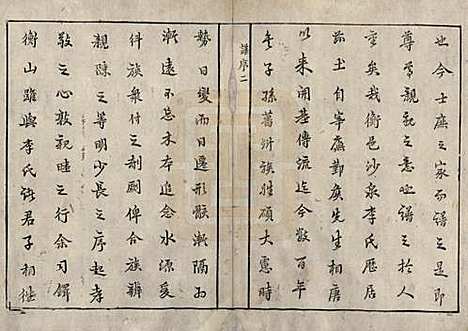 也今士庶之家而譜之是即
尊尊親親之意哉譜之於人
重矣我衡邑沙泉李氏歷居
茲土自宰廌勤廣先生相唐
以來開基傳流迄今數百年
矣子孫蕃衍族姓碩大慮時
譜序二
勢日變而日遷形骸漸隔而
漸遠不忘木本追念水源爰
糾族衆付之剞劂俾合族辨
親疎之等明少長之序起孝
敬之心敦親睦之行余司鐸
衡山雖與李氏諸君子相繼